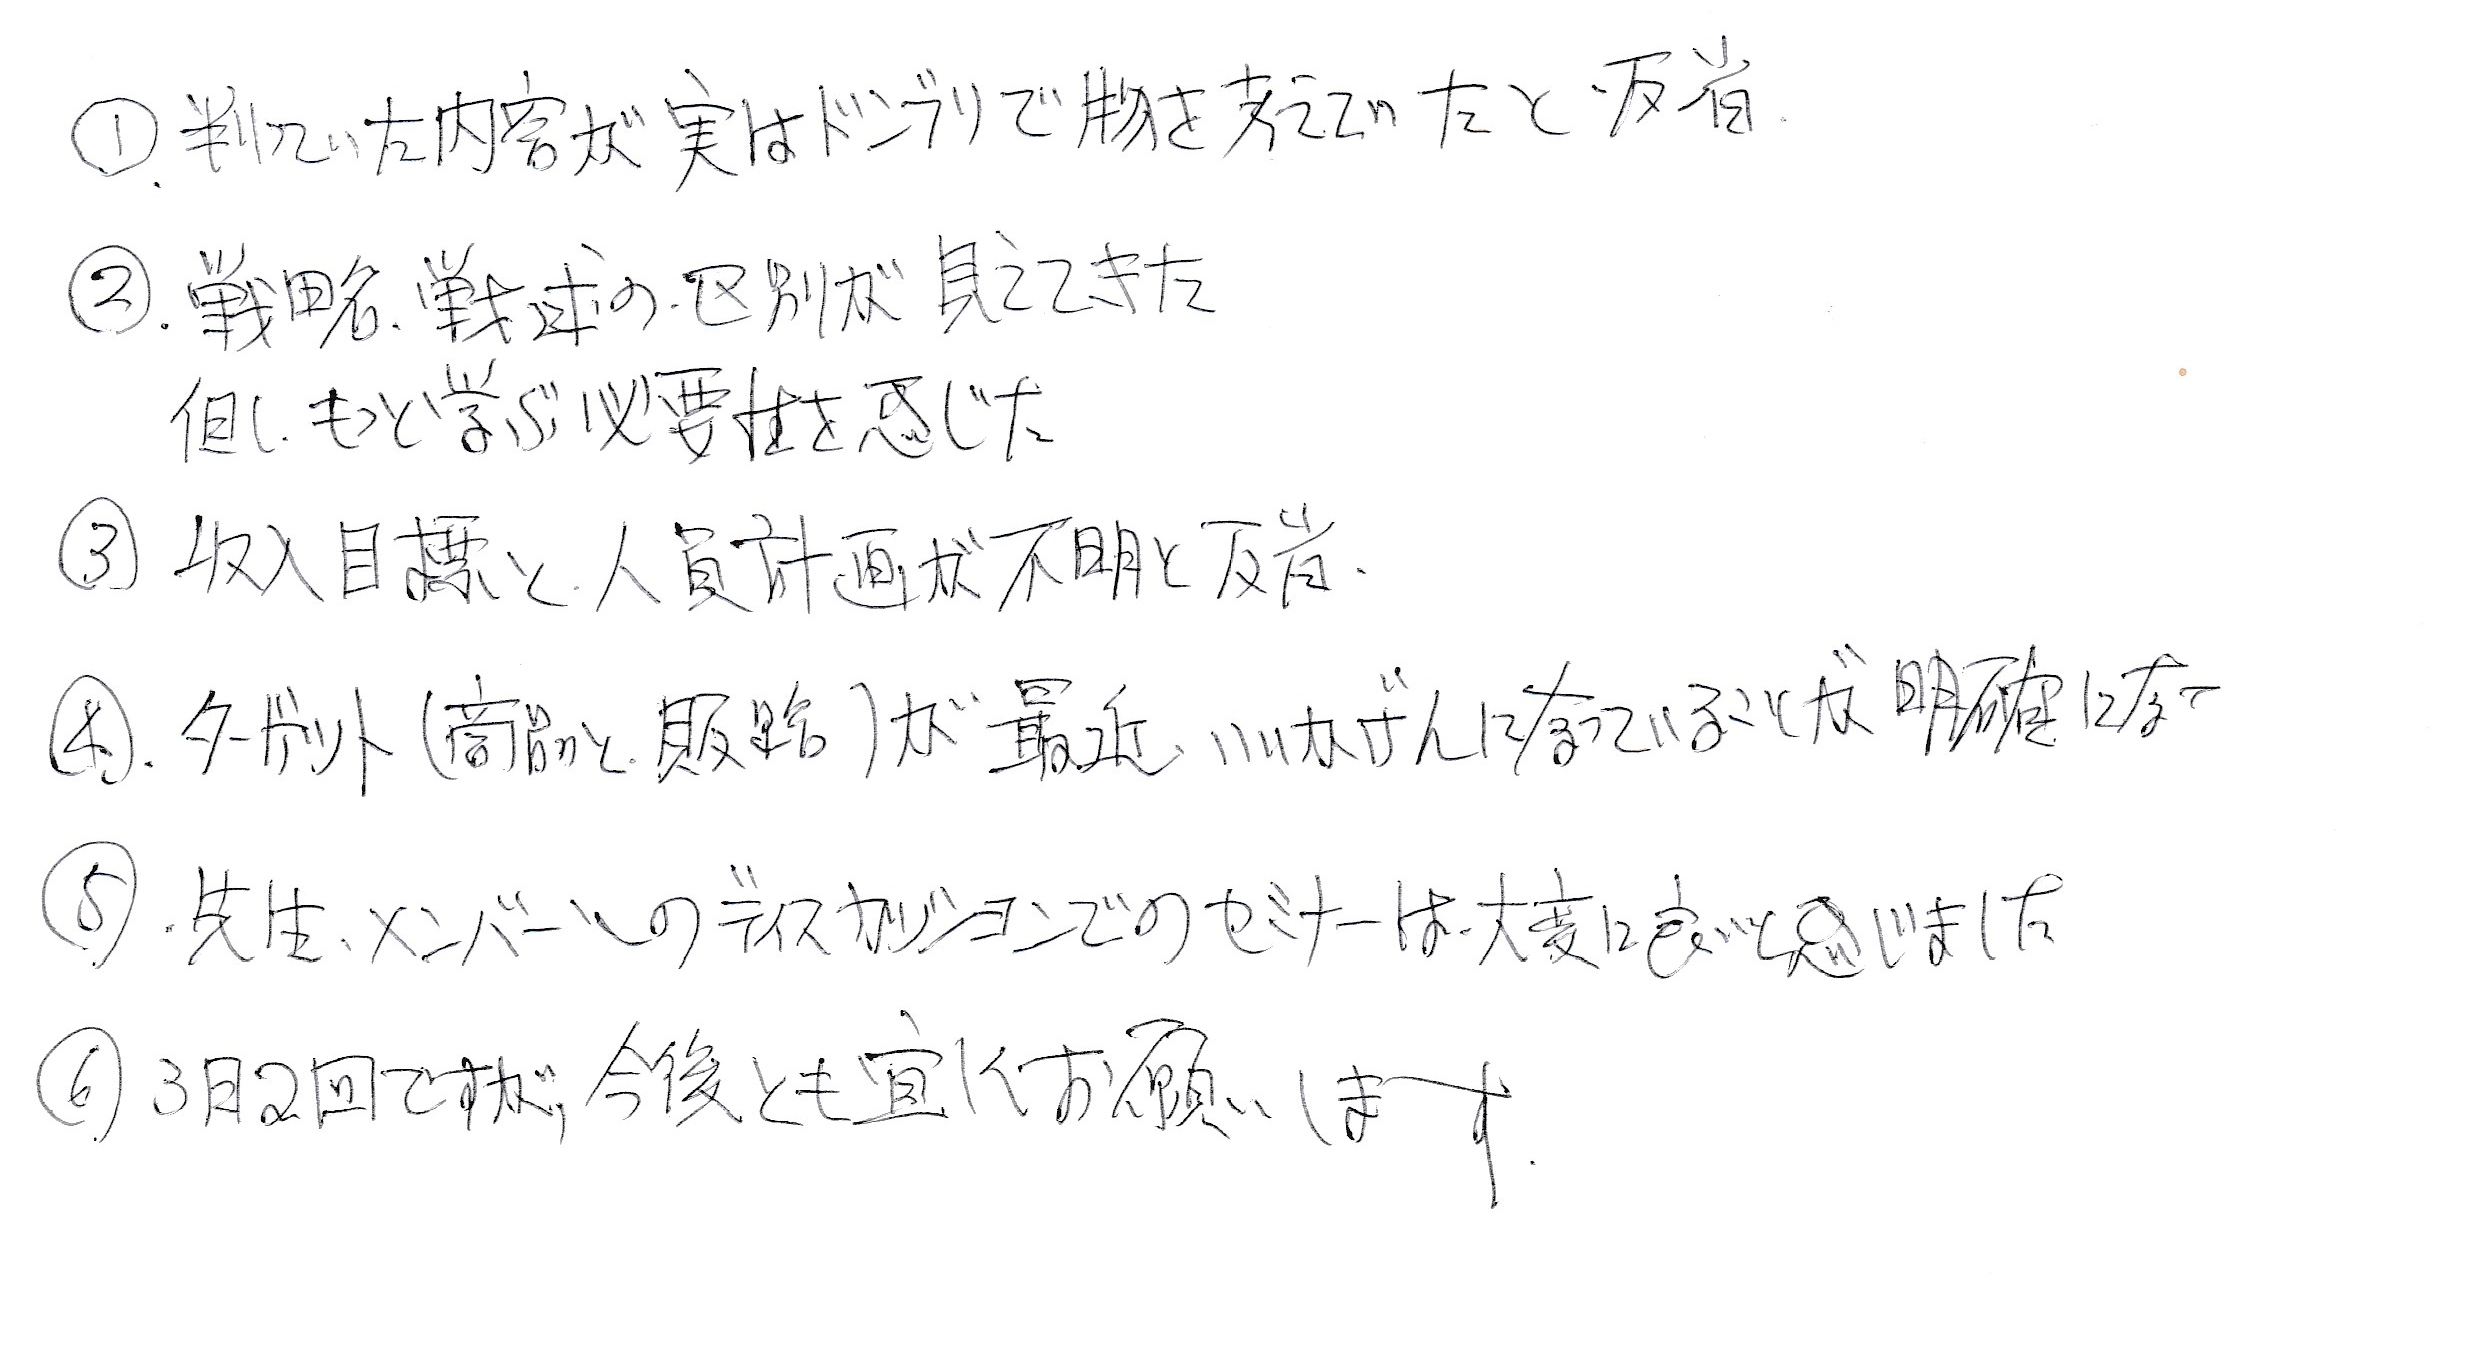 ① 判っていた内容が実はドンブリで物を考えていたと反省.
②. 戦略、戦術の区別が見えてきた
但し、もっと学ぶ必要性を感じた
③ 収入目標と人員計画が不明と反省.
④. ターゲット(商品と販路)が最近、いいかげんになっていることが明確になって
⑤. 先生、メンバーとのディスカッションでのセミナーは大変に良いと感じました
⑥ 3月2回ですが、今後とも宜しくお願いします.